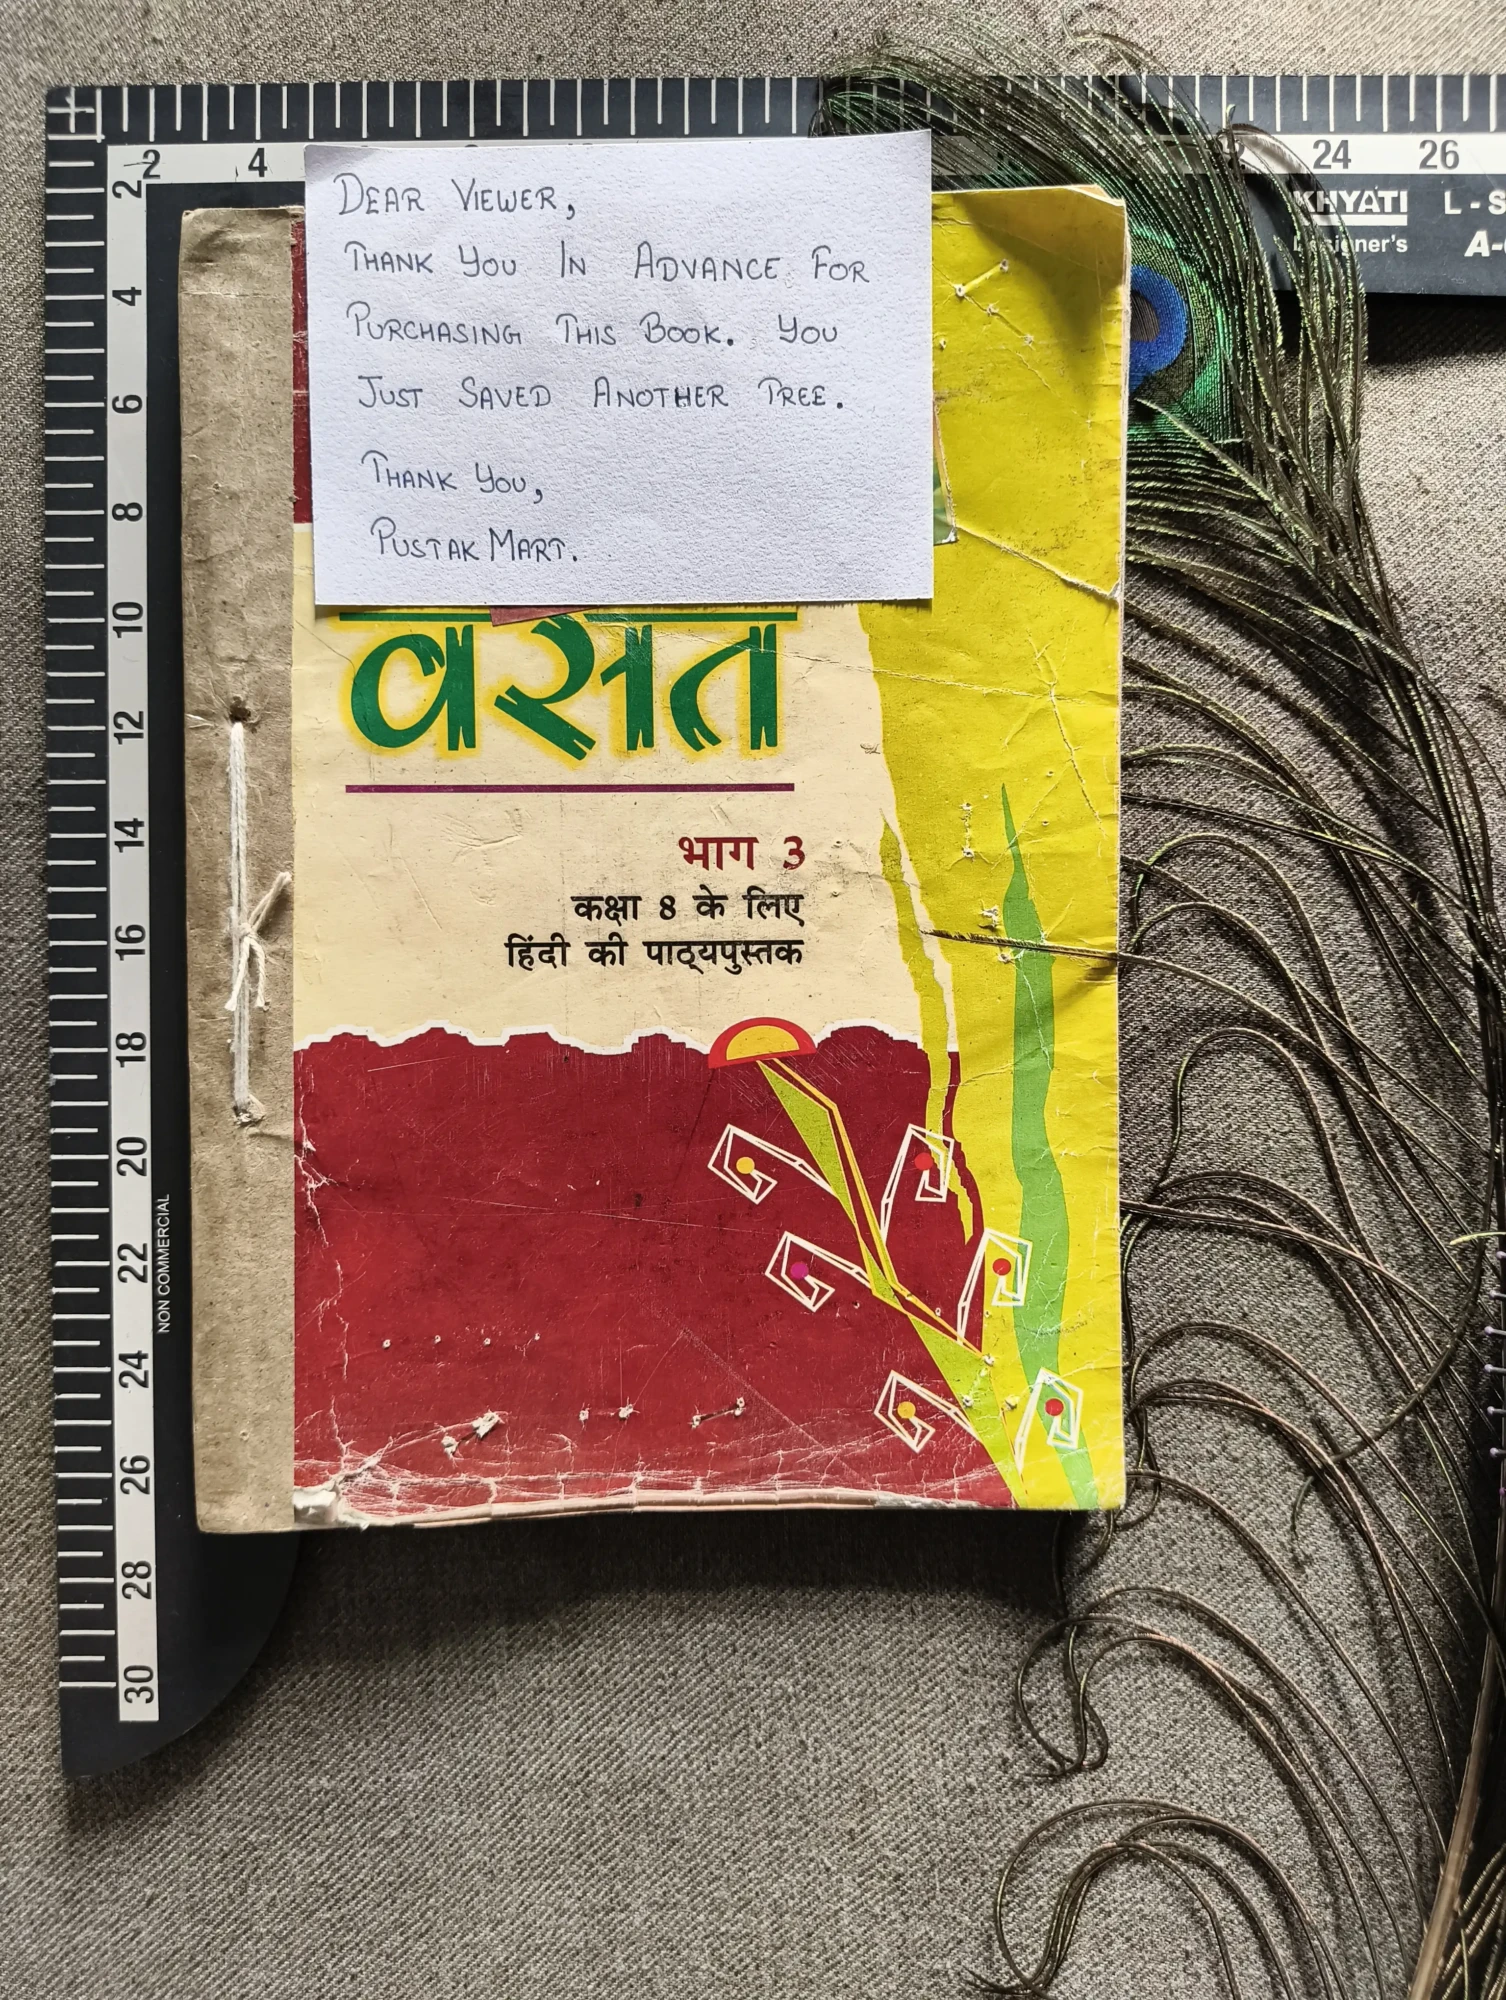 2 4 24 26
KHYATI L - S
Designer's A-
DEAR VIEWER,
THANK YOU IN ADVANCE FOR
PURCHASING THIS BOOK. YOU
JUST SAVED ANOTHER TREE.
THANK YOU,
PUSTAK MART.
वसंत
भाग 3
कक्षा 8 के लिए
हिंदी की पाठ्यपुस्तक
2
4
6
8
10
12
14
16
18
20
22
24
26
28
30
NON COMMERCIAL